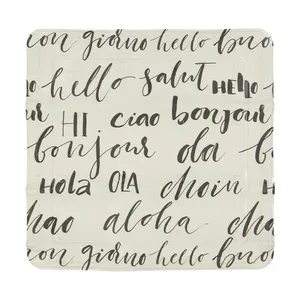 uon giorno hello buo
o hello salut HELLO
our HI ciao bonjour
bonjour da b
Hola OLA choin H
hao aloha cha
on giorno hello buon